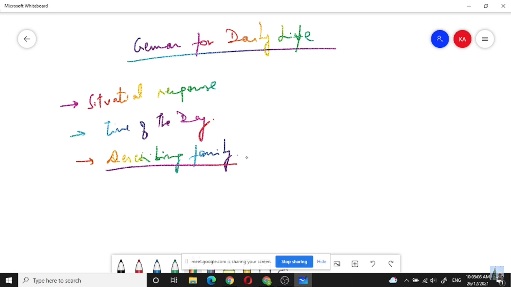 Microsoft Whiteboard
German for Daily Life
KA
→ Situatial response
→ Time of the Day.
→ Describing family..
meet.google.com is sharing your screen.
Stop sharing
Hide
Type here to search
ENG